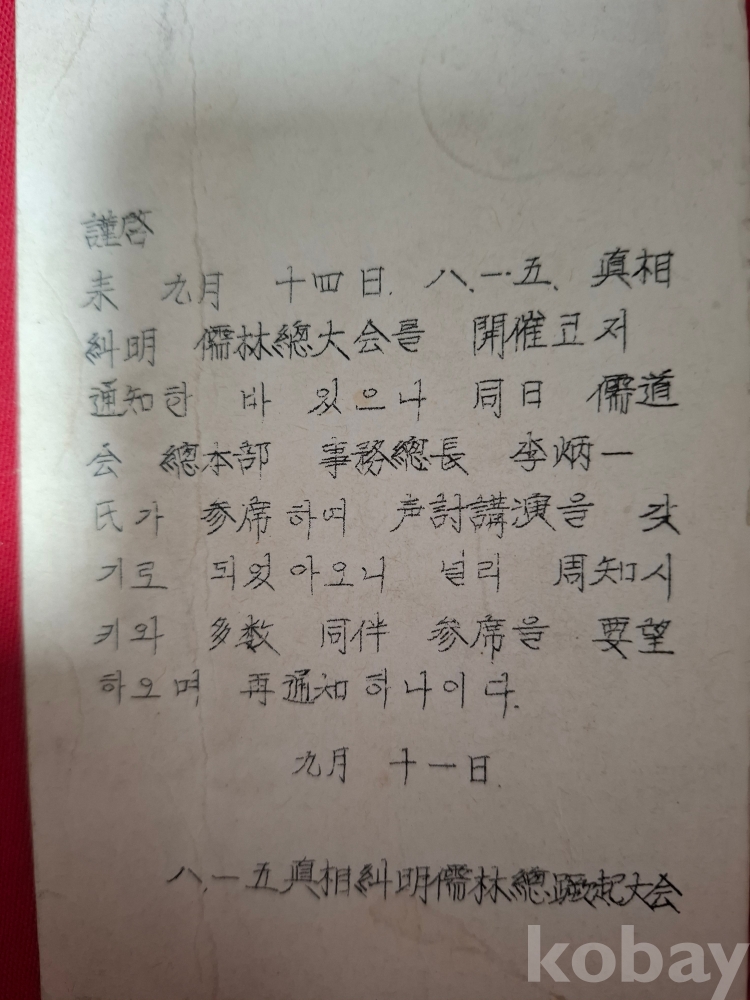 謹啓
来 九月 十四日. 八.一.五. 真相
糾明 儒林總大会를 開催코저
通知한 바 있으나 同日 儒道
会 總本部 事務總長 李炳一
氏가 参席하여 声討講演을 갖
기로 되었아오니 널리 周知시
키와 多数 同伴 参席을 要望
하오며 再通知하나이다.
九月 十一日
八.一五真相糾明儒林總蹶起大会
kobay